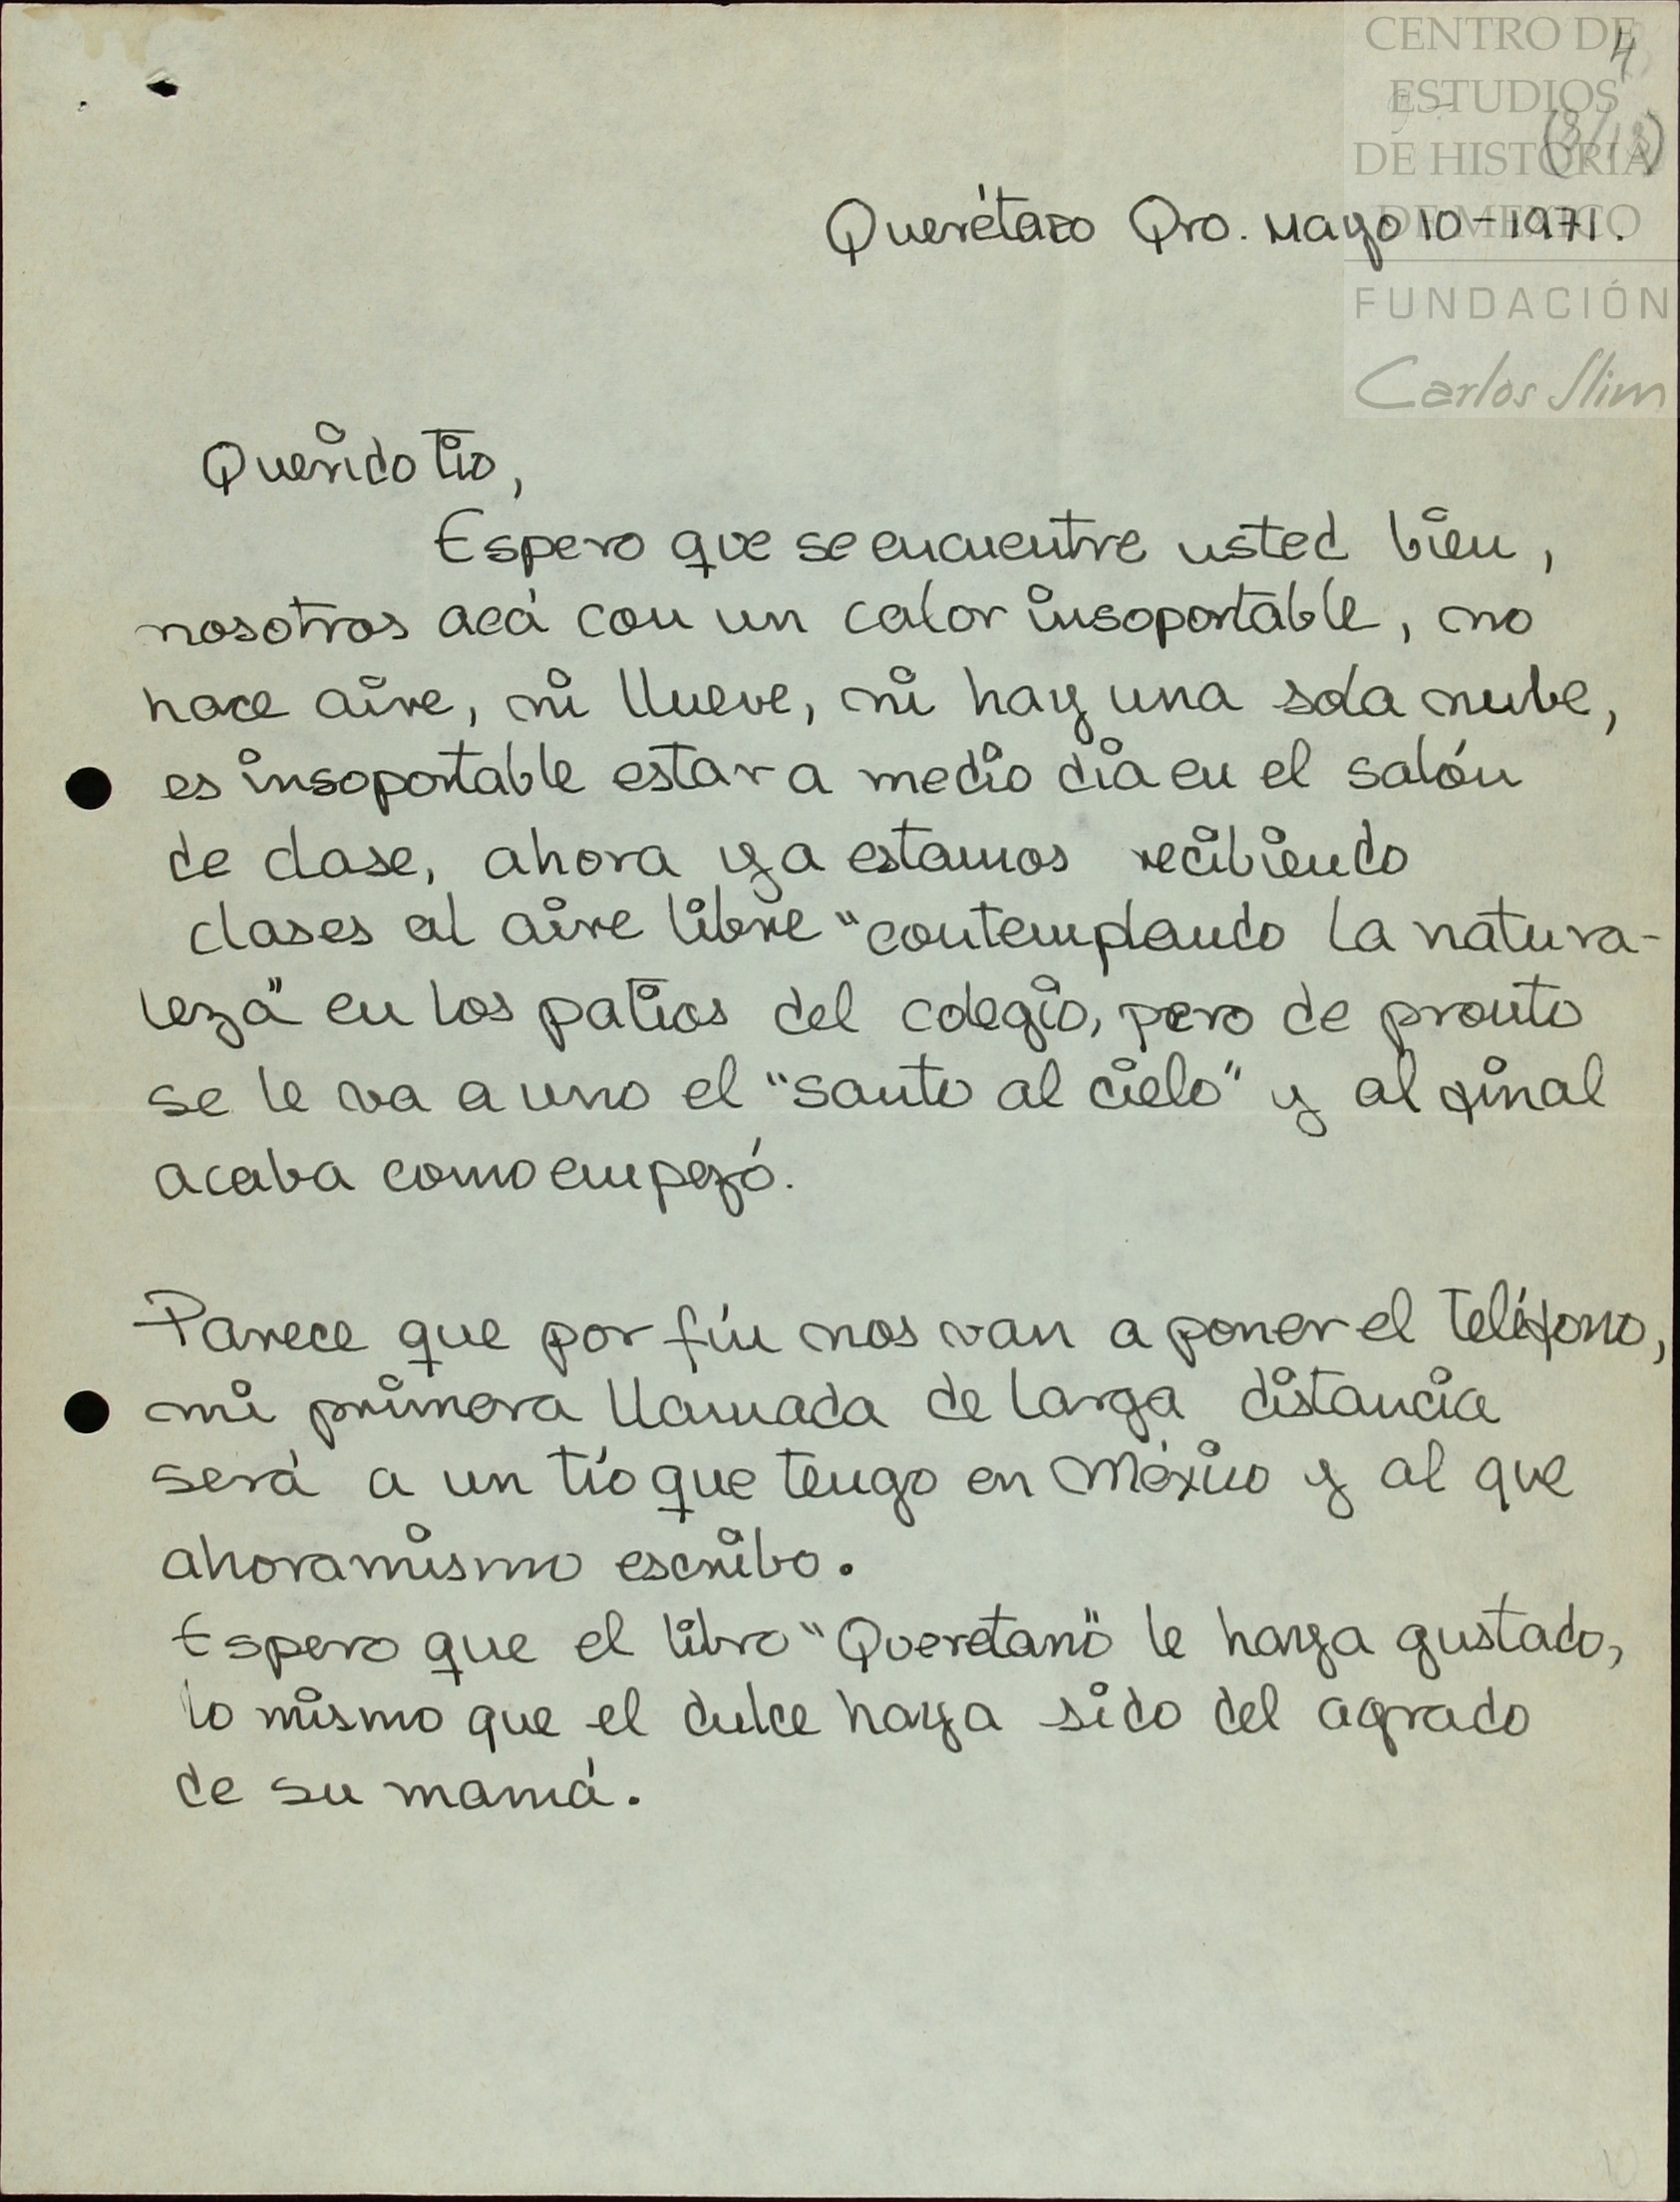 CENTRO DE
ESTUDIOS
DE HISTORIA
DE MEXICO
FUNDACIÓN
Carlos Slim
4
Querétaro Qro. Mayo 10-1971.
Querido tío,
Espero que se encuentre usted bien,
nosotros acá con un calor insoportable, no
hace aire, ni llueve, ni hay una sola nube,
es insoportable estar a medio dia en el salón
de clase, ahora ya estamos recibiendo
clases al aire libre "contemplando la natura-
leza" en los patios del colegio, pero de pronto
se le va a uno el "santo al cielo" y al final
acaba como empezó.
Parece que por fín nos van a poner el teléfono,
mi primera llamada de larga distancia
será a un tío que tengo en México y al que
ahora mismo escribo.
Espero que el libro "Queretano" le haya gustado,
lo mismo que el dulce haya sido del agrado
de su mamá.